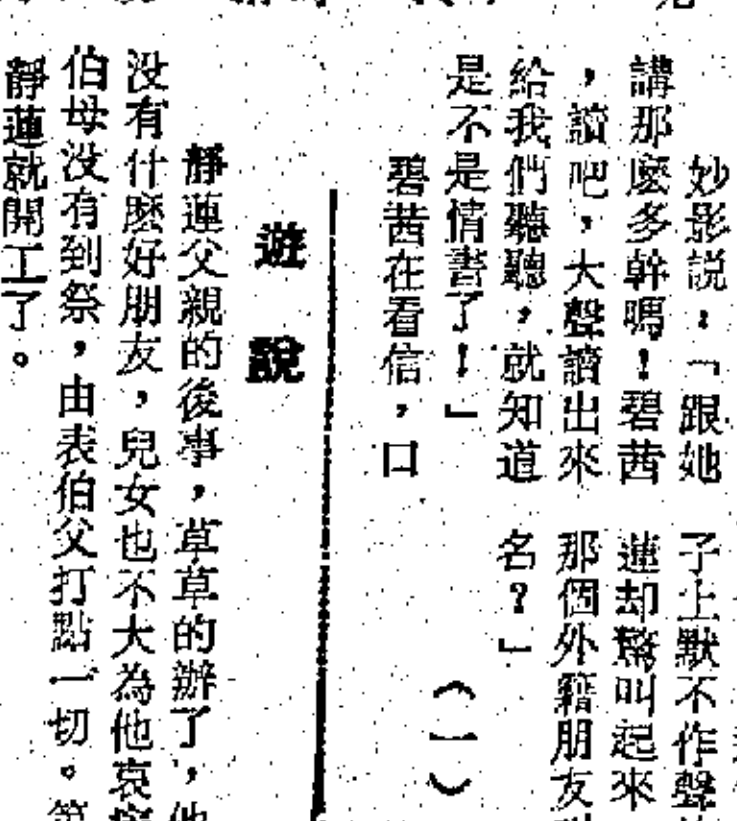 妙影説：「跟她
講那麽多幹嗎！碧茜
，讀吧，大聲讀出來
給我們聽聽，就知道
是不是情書了！」
碧茜在看信，口
子上默不作聲
蓮却驚叫起來
那個外籍朋友
名？」
（一）
遊說
靜蓮父親的後事，草草的辦了，他
没有什麽好朋友，兒女也不大為他哀
伯母没有到祭，由表伯父打點一切。第
靜蓮就開工了。